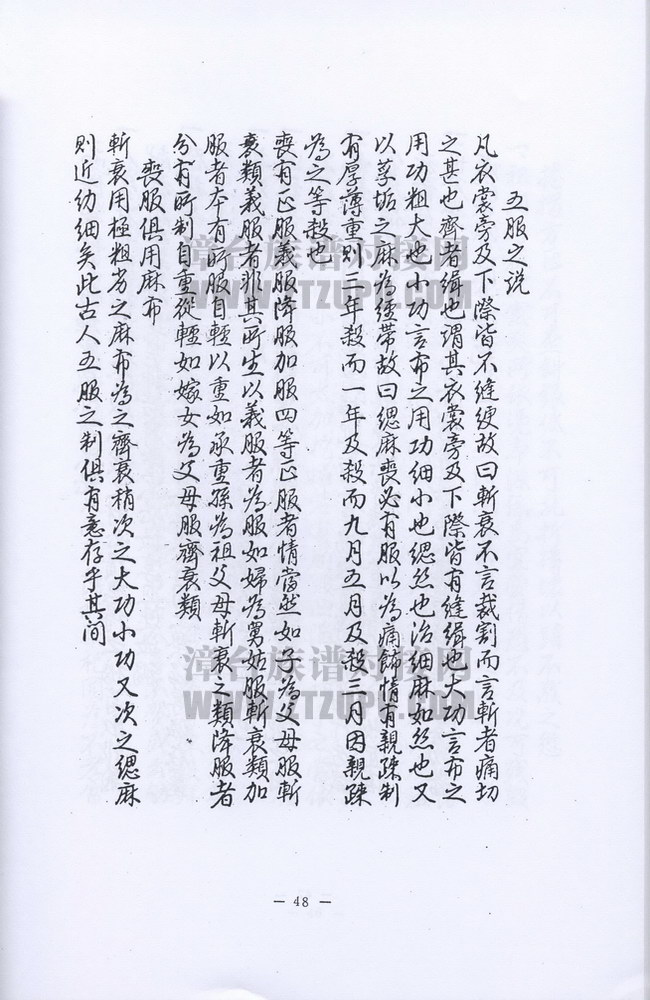 五服之说
凡衣裳旁及下際皆不縫緶故曰斬衰不言裁割而言斬者痛切
之甚也齊者緝也謂其衣裳旁及下際皆有縫緝也大功言布之
用功粗大也小功言布之用功細小也缌丝也治细麻如丝也又
以莩垢之麻為绖带故曰缌麻喪必有服以為痛飾情有親疎制
有厚薄重则三年殺而一年及殺而九月五月及殺三月因親疎
為之等殺也
喪有正服義服降服加服四等正服者情當然如子為父母服斬
衰類義服者非其所生以義服者為服如婦為舅姑服斬衰類加
服者本有所服自輕以重如承重孫為祖父母斬衰之類降服者
分有所制自重從輕如嫁女為父母服齊衰類
喪服俱用麻布
斬衰用極粗劣之麻布為之齊衰稍次之大功小功又次之缌麻
則近幼细矣此古人五服之制俱有意存乎其间
漳台族谱对接网
WWW.ZTZUPU.COM
漳台族谱对接网
WWW.ZTZUPU.COM
— 48 —